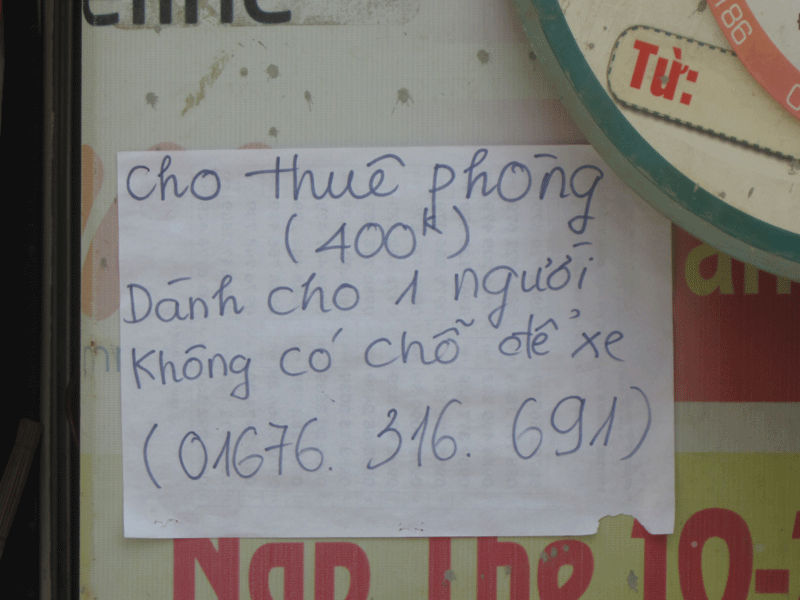 eline
186
Từ:
cho thuê phòng
(400k)
Dành cho 1 người
không có chỗ để xe
(01676. 316. 691)
Nạp Thẻ 10-